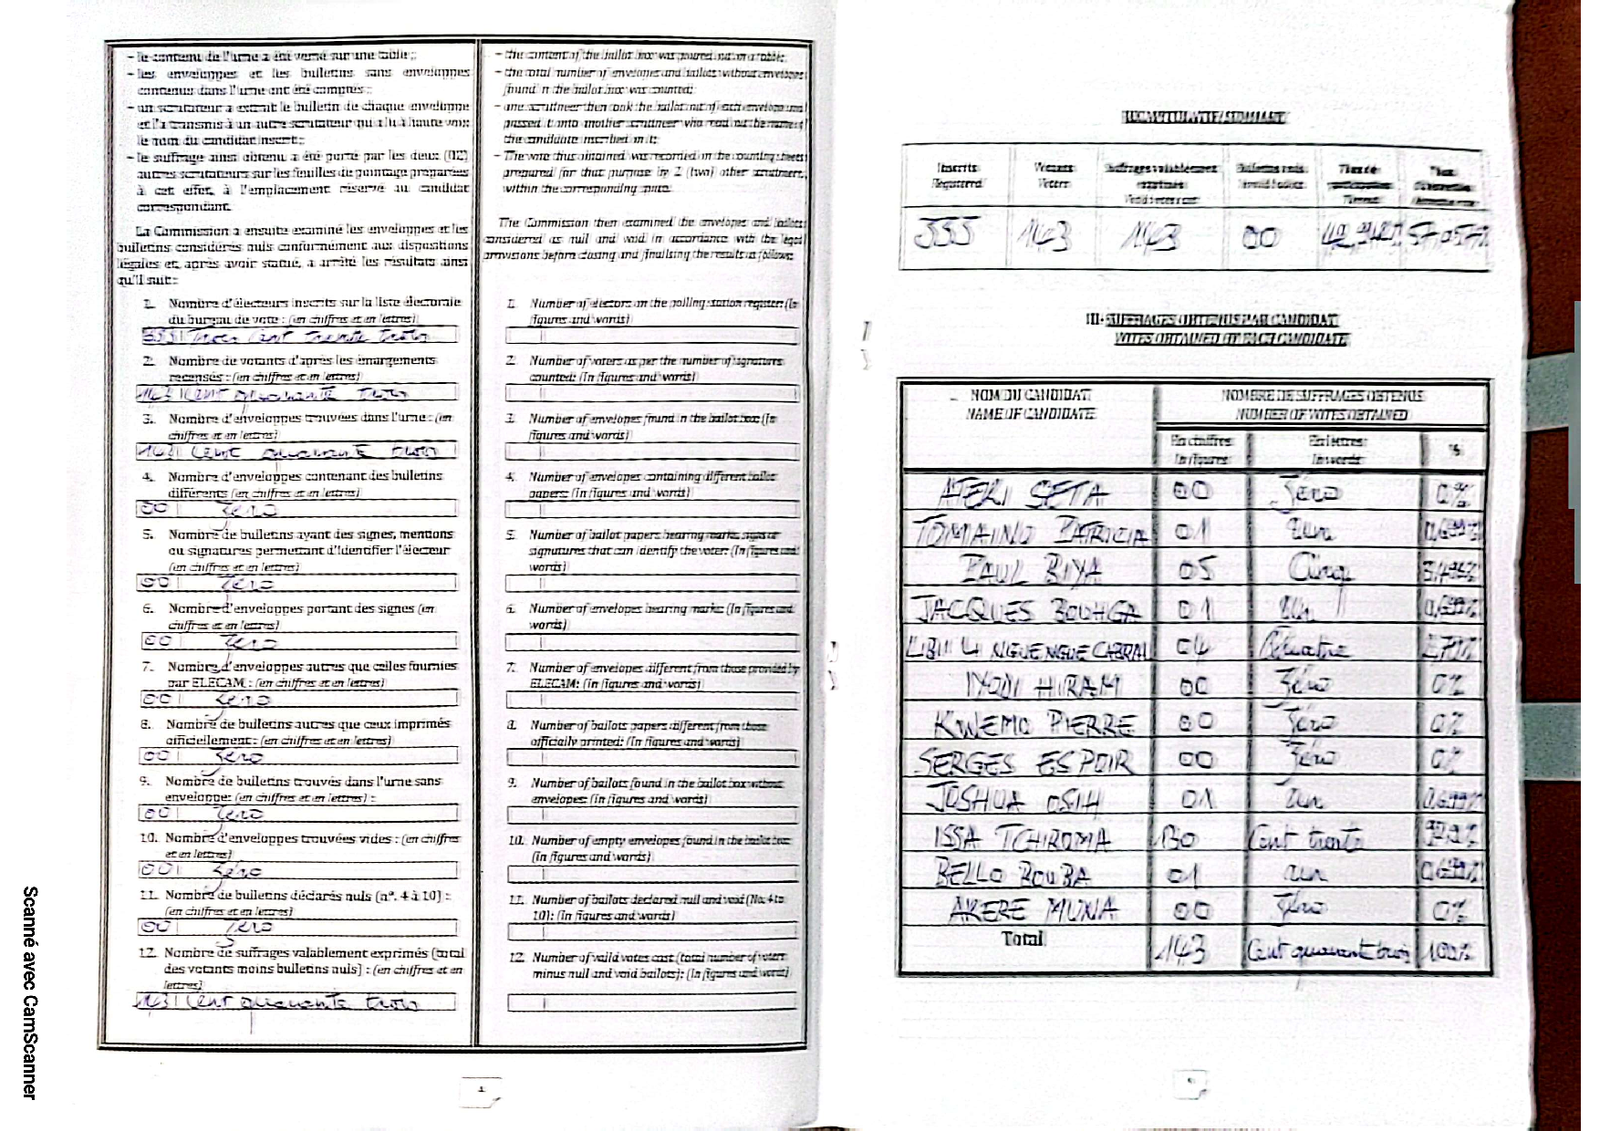 – le contenu de l'urne a été versé sur une table ;
– les enveloppes et les bulletins sans enveloppes
contenus dans l'urne ont été comptés ;
– un scrutateur a extrait le bulletin de chaque enveloppe
et l'a transmis à un autre scrutateur qui a lu à haute voix
le nom du candidat inscrit ;
– le suffrage ainsi obtenu a été porté par les deux (02)
autres scrutateurs sur les feuilles de pointage préparées
à cet effet, à l'emplacement réservé au candidat
correspondant.
La Commission a ensuite examiné les enveloppes et les
bulletins considérés nuls conformément aux dispositions
légales et, après avoir statué, a arrêté les résultats ainsi
qu'il suit :
1. Nombre d'électeurs inscrits sur la liste électorale
du bureau de vote : (en chiffres et en lettres)
333 Trois Cent trente trois
2. Nombre de votants d'après les émargements
recensés : (en chiffres et en lettres)
143 Cent quarante trois
3. Nombre d'enveloppes trouvées dans l'urne : (en
chiffres et en lettres)
143 Cent quarante trois
4. Nombre d'enveloppes contenant des bulletins
différents (en chiffres et en lettres)
00 Zéro
5. Nombre de bulletins ayant des signes, mentions
ou signatures permettant d'identifier l'électeur
(en chiffres et en lettres)
00 Zéro
6. Nombre d'enveloppes portant des signes (en
chiffres et en lettres)
00 Zéro
7. Nombre d'enveloppes autres que celles fournies
par ELECAM : (en chiffres et en lettres)
00 Zéro
8. Nombre de bulletins autres que ceux imprimés
officiellement : (en chiffres et en lettres)
00 Zéro
9. Nombre de bulletins trouvés dans l'urne sans
enveloppe : (en chiffres et en lettres) :
00 Zéro
10. Nombre d'enveloppes trouvées vides : (en chiffres
et en lettres)
00 Zéro
11. Nombre de bulletins déclarés nuls (n°. 4 à 10) :
(en chiffres et en lettres)
00 Zéro
12. Nombre de suffrages valablement exprimés (total
des votants moins bulletins nuls) : (en chiffres et en
lettres)
143 Cent quarante trois
– the content of the ballot box was poured out on a table;
– the total number of envelopes and ballots without envelopes
found in the ballot box was counted;
– one scrutineer then took the ballot out of each envelope and
passed it unto another scrutineer who read out the name of
the candidate inscribed in it;
– The vote thus obtained was recorded in the counting sheets
prepared for that purpose by 2 (two) other scrutineers,
within the corresponding space.
The Commission then examined the envelopes and ballots
considered as null and void in accordance with the legal
provisions before closing and finalising the results as follows:
1. Number of electors on the polling station register: (In
figures and words)
2. Number of voters as per the number of signatures
counted: (In figures and words)
3. Number of envelopes found in the ballot box: (In
figures and words)
4. Number of envelopes containing different ballot
papers: (In figures and words)
5. Number of ballot papers bearing marks, signs or
signatures that can identify the voter: (In figures and
words)
6. Number of envelopes bearing marks: (In figures and
words)
7. Number of envelopes different from those provided by
ELECAM: (In figures and words)
8. Number of ballots papers different from those
officially printed: (In figures and words)
9. Number of ballots found in the ballot box without
envelopes: (In figures and words)
10. Number of empty envelopes found in the ballot box:
(In figures and words)
11. Number of ballots declared null and void (No. 4 to
10): (In figures and words)
12. Number of valid votes cast (total number of voters
minus null and void ballots): (In figures and words)
4
RECAPITULATIF/SUMMARY
Inscrits Votants Suffrages valablement exprimés Bulletins nuls Taux de participation
Registered Voters Valid votes cast Invalid ballots Turnout
333 143 143 00 42,942% 57,057%
II- SUFFRAGES OBTENUS PAR CANDIDAT
VOTES OBTAINED BY EACH CANDIDATE
NOM DU CANDIDAT NOMBRE DE SUFFRAGES OBTENUS
NAME OF CANDIDATE NUMBER OF VOTES OBTAINED
En chiffres En lettres %
In figures In words
ATEKI SETA 00 Zéro 0%
TOMAINO PATRICIA 01 un 0,699%
PAUL BIYA 05 Cinq 3,496%
JACQUES BOUHGA 01 Un 0,699%
LIBII LI NGUENGUE CABRAL 04 Quatre 2,797%
IYODI HIRAM 00 Zéro 0%
KWEMO PIERRE 00 Zéro 0%
SERGES ESPOIR 00 Zéro 0%
JOSHUA OSIH 01 un 0,699%
ISSA TCHIROMA 130 Cent trente
BELLO BOUBA 01 un 0,699%
AKERE MUNA 00 Zéro 0%
Total 143 Cent quarant trois 100%
Scanné avec CamScanner